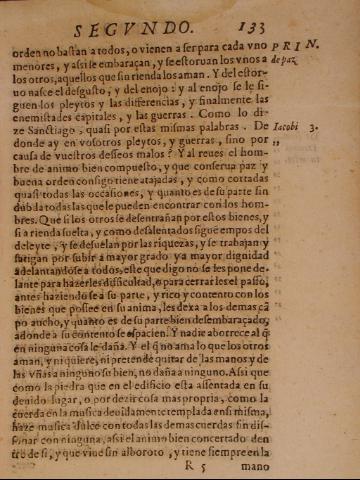 SEGVNDO. 133
orden no bastan a todos, o vienen a ser para cada vno PRIN.
menores, y assi se embaraçan, y se estoruan los vnos a de paz
los otros, aquellos que sin rienda los aman. Y del estor-
uo nasce el desgusto, y del enojo: y al enojo se le si-
guen los pleytos y las differencias, y finalmente las
enemistades capitales, y las guerras. Como lo di-
ze Sanctiago, quasi por estas mismas palabras. De Iacobi 3.
donde ay en vosotros pleytos, y guerras, sino por „
causa de vuestros deseos malos? Y al reues el hom-
bre de animo bien compuesto, y que conserua paz y
buena orden consigo tiene atajadas, y como cortadas
quasi todas las occasiones, y quanto es de su parte sin
dubda todas las que le pueden encontrar con los hom-
bres. Que si los otros se desentrañan por estos bienes, y
si a rienda suelta, y como desalentados siguẽ empos del
deleyte, y se desuelan por las riquezas, y se trabajan y
fatigan por subir a mayor grado y a mayor dignidad
adelantandose a todos, este que digo no se les pone de-
lante para hazerles difficultad, o para cerrarles el passo,
antes haziendose a su parte, y rico y contento con los
bienes que posee en su anima, les dexa a los demas cã
po aucho, y quanto es de su parte bien desembaraçado,
adonde a su contento se espacien. Y nadie aborrece al q̃
en ninguna cosa le daña. Y el q̃ no ama lo que los otros
aman, y ni quiere, ni pretende quitar de las manos y de
las vñas a ninguno su bien, no daña a ninguno. Assi que
como la piedra que en el edificio esta assentada en su
denido lugar, o por dezir cosa mas propria, como la
cuerda en la musica deuidamente templada en si misma,
haze musica dulce con todas las demas cuerdas sin dis-
sonar con ninguna, assi el animo bien concertado den
tro de si, y que viue sin alboroto, y tiene siempre en la
R 5 mano